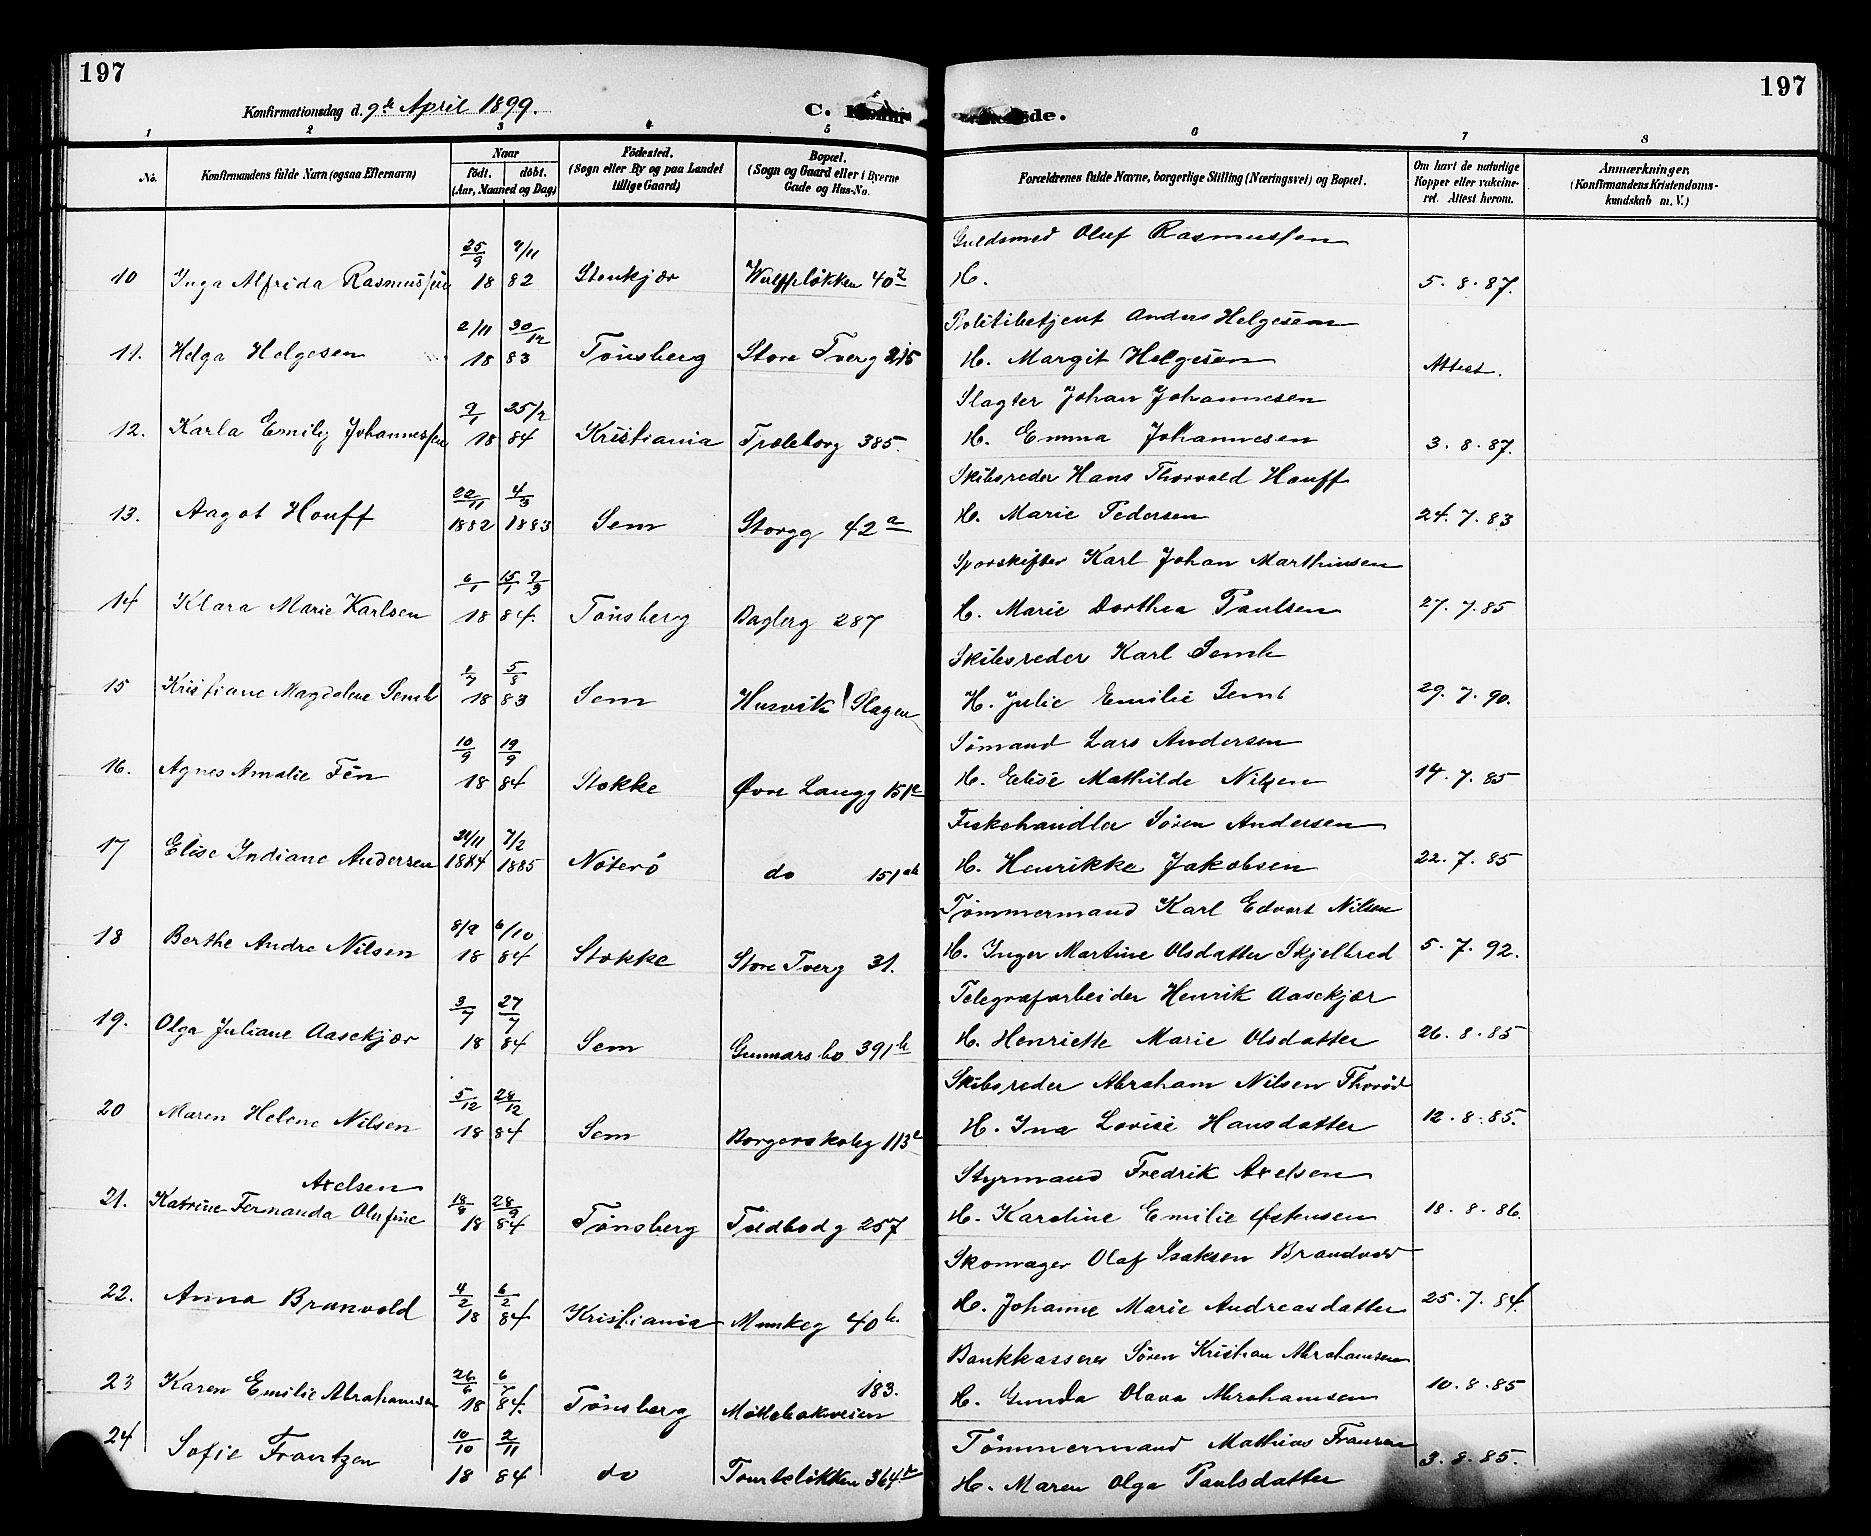 197
197
Konfirmationsdag d. 9de April 1899.
C.
de.
1 2 3 4 5 6 7 8
No.
Konfirmandens fulde Navn (ogsaa Efternavn)
Naar
födt. döbt.
(Aar, Maaned og Dag)
Födested.
(Sogn eller By og paa Landet
tillige Gaard)
Bopæl.
(Sogn og Gaard eller i Byerne
Gade og Hus-No.
Forældrenes fulde Navne, borgerlige Stilling (Næringsvei) og Bopæl.
Om havt de naturlige
Kopper eller vakcine-
ret. Attest herom.
Anmærkninger.
(Konfirmandens Kristendoms-
kundskab m. V.)
25/9 9/11 Guldsmed Oluf Rasmussen
10 Inga Alfrida Rasmussen 18 82 Stenkjær Wulffsløkken 40 H. 5.8.87.
2/11 30/12 Politibetjent Anders Helgesen
11. Helga Helgesen 18 83 Tønsberg Store Tverg 215 H. Margit Helgesen Attest.
9/1 25/2 Slagter Johan Johannesen
12. Karla Emily Johannessen 18 84 Kristiania Træleborg 385. H. Emma Johannesen 3.8.87.
22/11 4/3 Skibsreder Hans Thorvald Houff
13. Aagot Houff 1882 1883 Sem Storgg 42a H. Marie Pedersen 24.7.83
6/1 15/1 9/3 Sporskifter Karl Johan Marthinsen
14 Klara Marie Karlsen 18 84. Tønsberg Bagberg 287 H. Marie Dorthea Paulsen 27.7.85
1/7 5/8 Skibsreder Karl Semb
15 Kristiane Magdalene Semb 18 83 Sem Husvik Slagen H. Julie Emilie Semb 29.7.90.
10/9 19/9 Sømand Lars Andersen
16. Agnes Amalie Fèn 18 84 Stokke Øvre Langg 151c H. Elise Mathilde Nilsen 14.7.85
21/11 7/2 Fiskehandler Søren Andersen
17 Elise Indiane Andersen 1884 1885 Nøterø do 151ab H. Henrikke Jakobsen 22.7.85
8/9 6/10 Tømmermand Karl Edvart Nilsen
18 Berthe Andre Nilsen 18 84 Stokke Store Tverg 31. H. Inger Martine Olsdatter Skjelbred 5.7.92.
3/7 27/7 Telegrafarbeider Henrik Aasekjær
19. Olga Juliane Aasekjær 18 84 Sem Gunnarsbo 391b H. Henriette Marie Olsdatter 26.8.85
5/12 28/12 Skibsreder Abraham Nilsen Thorød
20 Maren Helene Nilsen 18 84 Sem Borgerskoleg 113c H. Ina Lovise Hansdatter 12.8.85.
Axelsen 18/8 28/9 Styrmand Fredrik Axelsen
21. Katrine Fernanda Olufine 18 84 Tønsberg Toldbodg 257 H. Karoline Emilie Østensen 18.8.86.
4/2 6/2 Skomager Olaf Isaksen Brandvold
22. Anna Branvold 18 84 Kristiania Munkeg 40b. H. Johanne Marie Andreasdatter 25.7.84.
26/6 6/7 183. Bankkasserer Søren Kristian Abrahamsen
23 Karen Emilie Abrahamsen 18 84. Tønsberg Møllebakveien H. Gunda Olava Abrahamsen 10.8.85
10/10 2/11 Tømmermand Mathias Fransen
24 Sofie Frantzen 18 84 do 364 H. Maren Olga Paulsdatter 3.8.85.